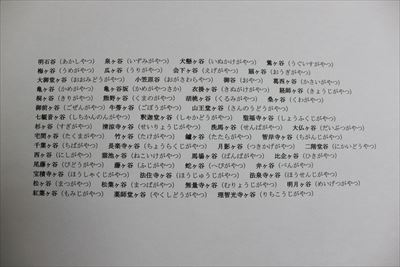 明石谷（あかしやつ）　泉ヶ谷（いずみがやつ）　犬懸ヶ谷（いぬかけがやつ）　鶯ヶ谷（うぐいすがやつ）
梅ヶ谷（うめがやつ）　瓜ヶ谷（うりがやつ）　会下ヶ谷（えげがやつ）　扇ヶ谷（おうぎがやつ）
大御堂ヶ谷（おおみどうがやつ）　小笠原谷（おがさわらやつ）　御谷（おやつ）　葛西ヶ谷（かさいがやつ）
亀ヶ谷（かめがやつ）　亀ヶ谷坂（かめがやつさか）　衣掛ヶ谷（きぬがけがやつ）　経師ヶ谷（きょうじがやつ）
桐ヶ谷（きりがやつ）　熊野ヶ谷（くまのがやつ）　胡桃ヶ谷（くるみがやつ）　桑ヶ谷（くわがやつ）
御前ヶ谷（ごぜんがやつ）　牛蒡ヶ谷（ごぼうがやつ）　山王堂ヶ谷（さんのうどうがやつ）
七観音ヶ谷（しちかんのんがやつ）　釈迦堂ヶ谷（しゃかどうがやつ）　聖福寺ヶ谷（しょうふくじがやつ）
杉ヶ谷（すぎがやつ）　清涼寺ヶ谷（せいりょうじがやつ）　洗馬ヶ谷（せんばがやつ）　大仏ヶ谷（だいぶつがやつ）
宅間ヶ谷（たくまがやつ）　竹ヶ谷（たけがやつ）　鑪ヶ谷（たたらがやつ）　智岸寺ヶ谷（ちがんじがやつ）
千葉ヶ谷（ちばがやつ）　長楽寺ヶ谷（ちょうらくじがやつ）　月影ヶ谷（つきかげがやつ）　二階堂谷（にかいどうやつ）
西ヶ谷（にしがやつ）　猫池ヶ谷（ねこいけがやつ）　馬場ヶ谷（ばんばがやつ）　比企ヶ谷（ひきがやつ）
尾藤ヶ谷（びとうがやつ）　藤ヶ谷（ふじがやつ）　蛇ヶ谷（へびがやつ）　弁ヶ谷（べんがやつ）
宝積寺ヶ谷（ほうしゃくじがやつ）　法住寺ヶ谷（ほうじゅうじがやつ）　法泉寺ヶ谷（ほうせんじがやつ）
松ヶ谷（まつがやつ）　松葉ヶ谷（まつばがやつ）　無量寺ヶ谷（むりょうじがやつ）　明月ヶ谷（めいげつがやつ）
紅葉ヶ谷（もみじがやつ）　薬師堂ヶ谷（やくしどうがやつ）　理智光寺ヶ谷（りちこうじがやつ）